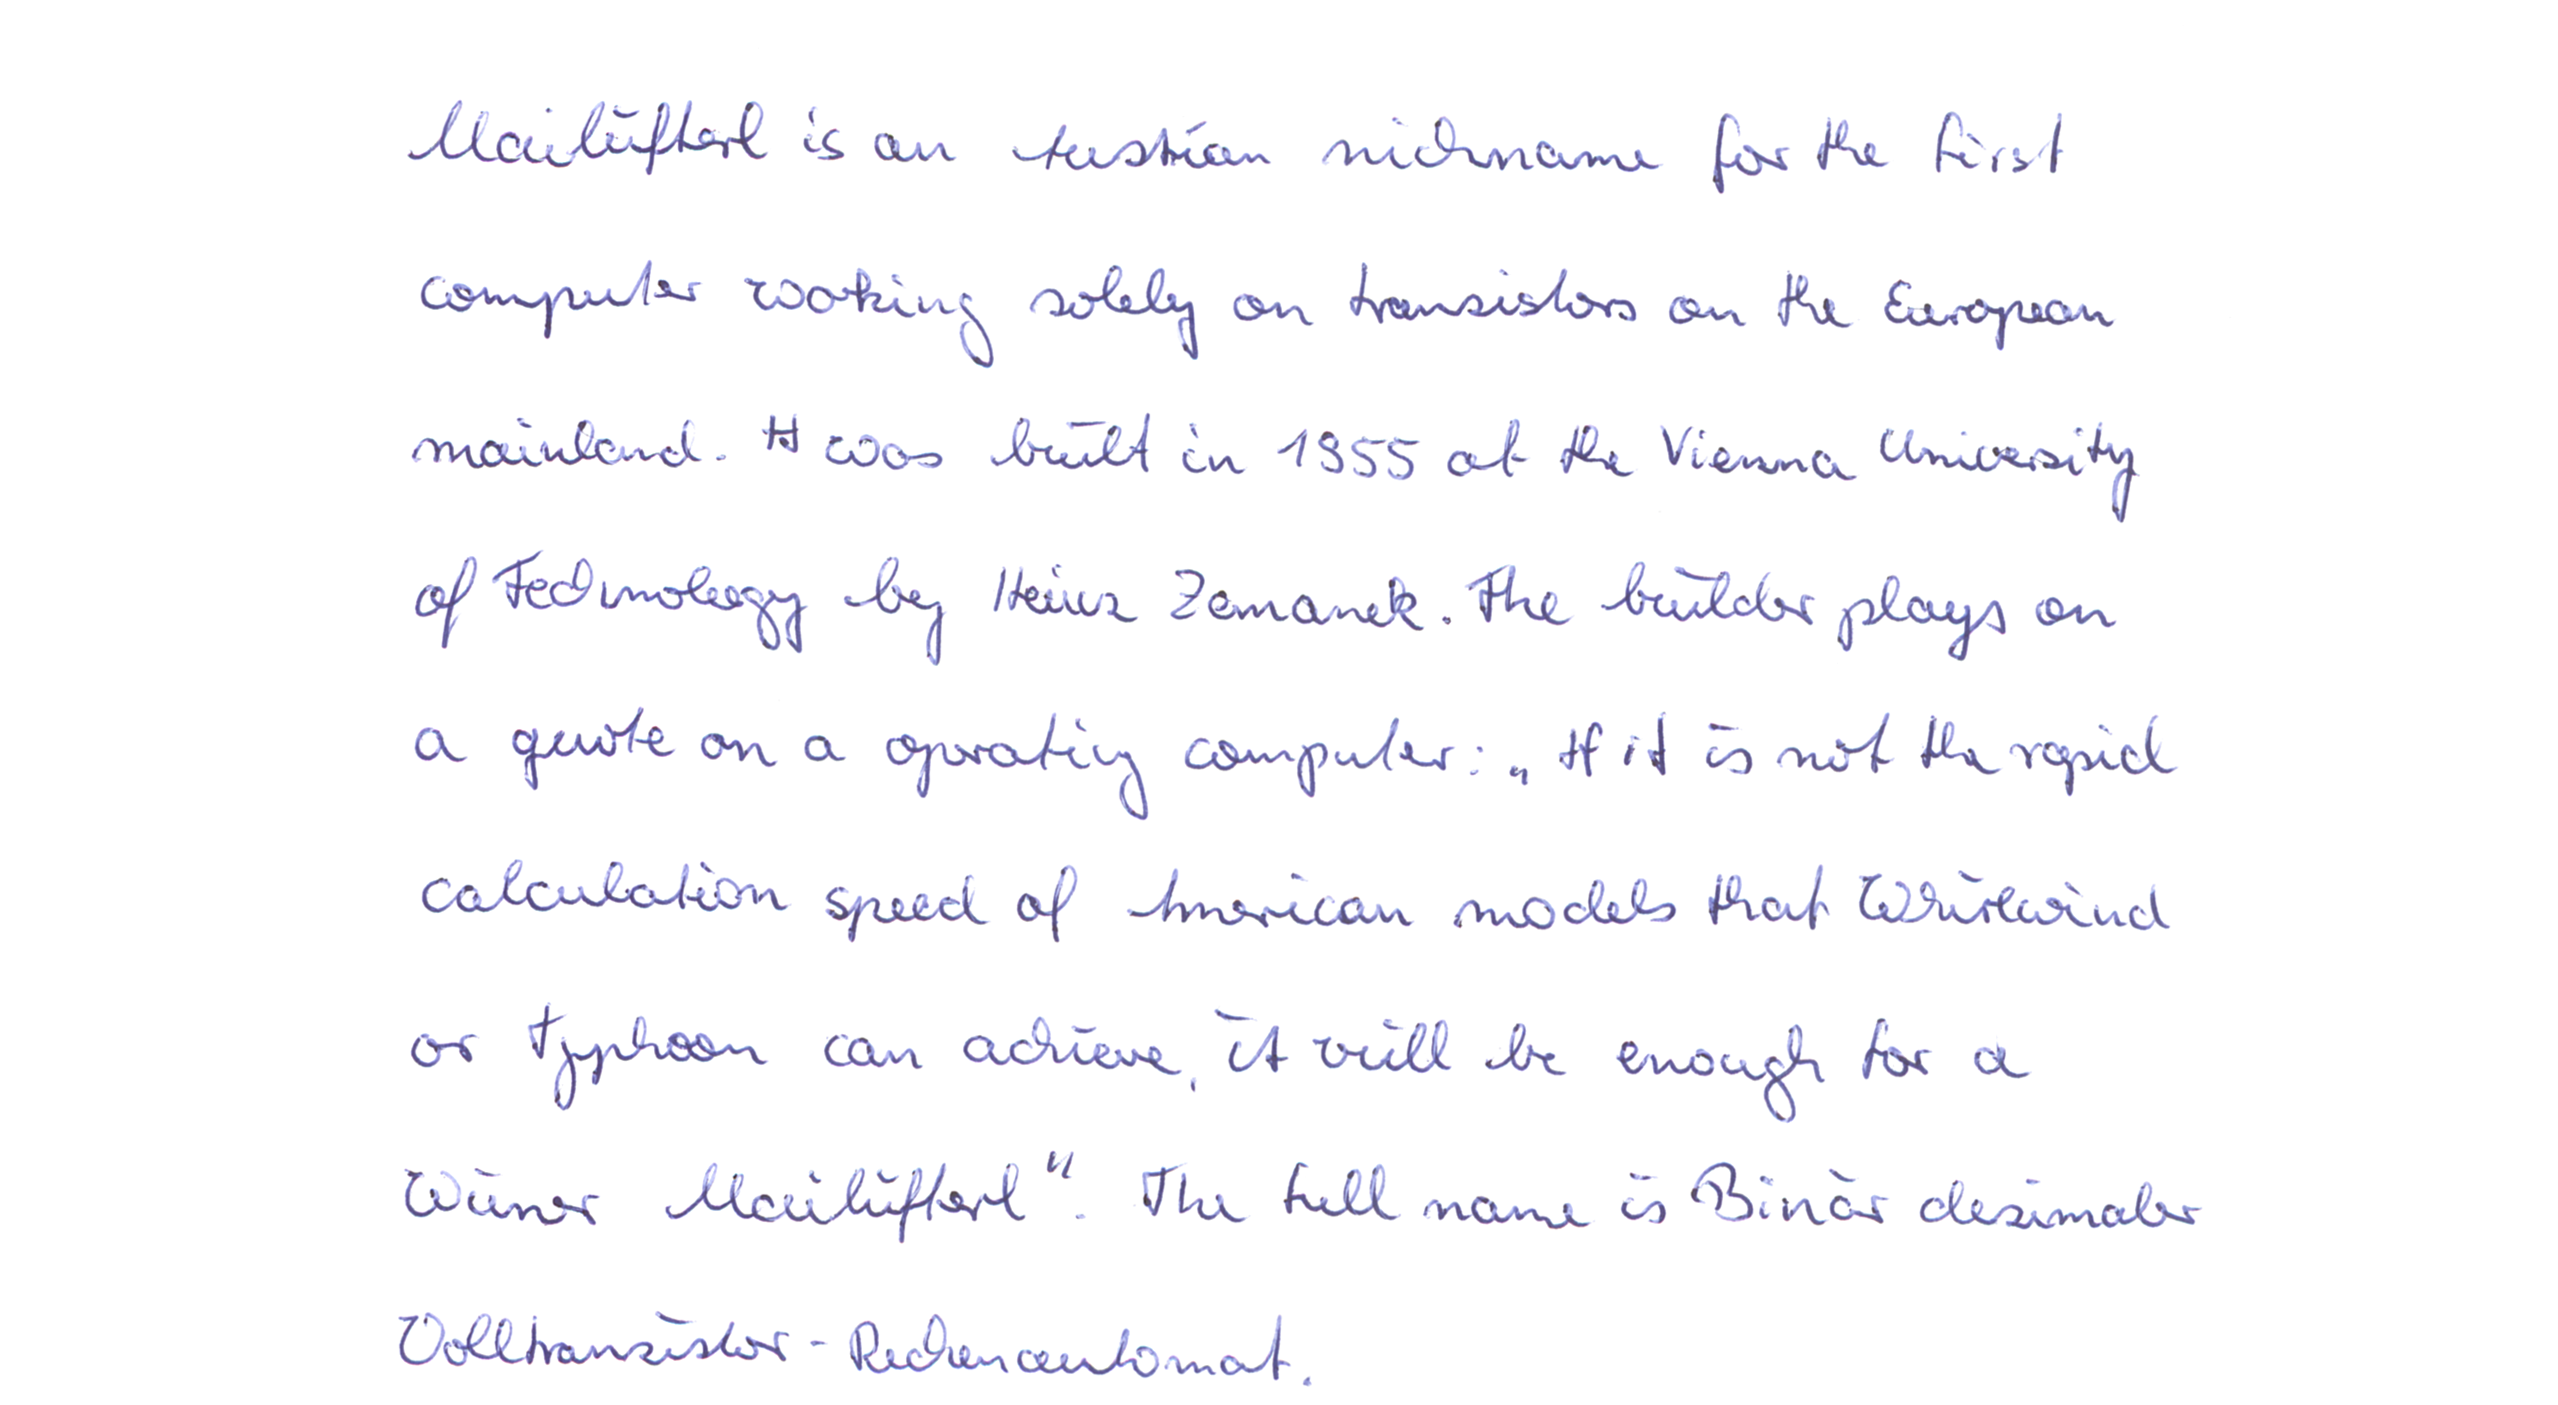 Mailüfterl is an Austrian nickname for the first
computer working solely on transistors on the European
mainland. It was built in 1955 at the Vienna University
of Technology by Heinz Zemanek. The builder plays on
a quote on a operating computer: „If it is not the rapid
calculation speed of American models that Whirlwind
or Typhoon can achieve, it will be enough for a
Wiener Mailüfterl“. The full name is Binär dezimaler
Volltransistor-Rechenautomat.